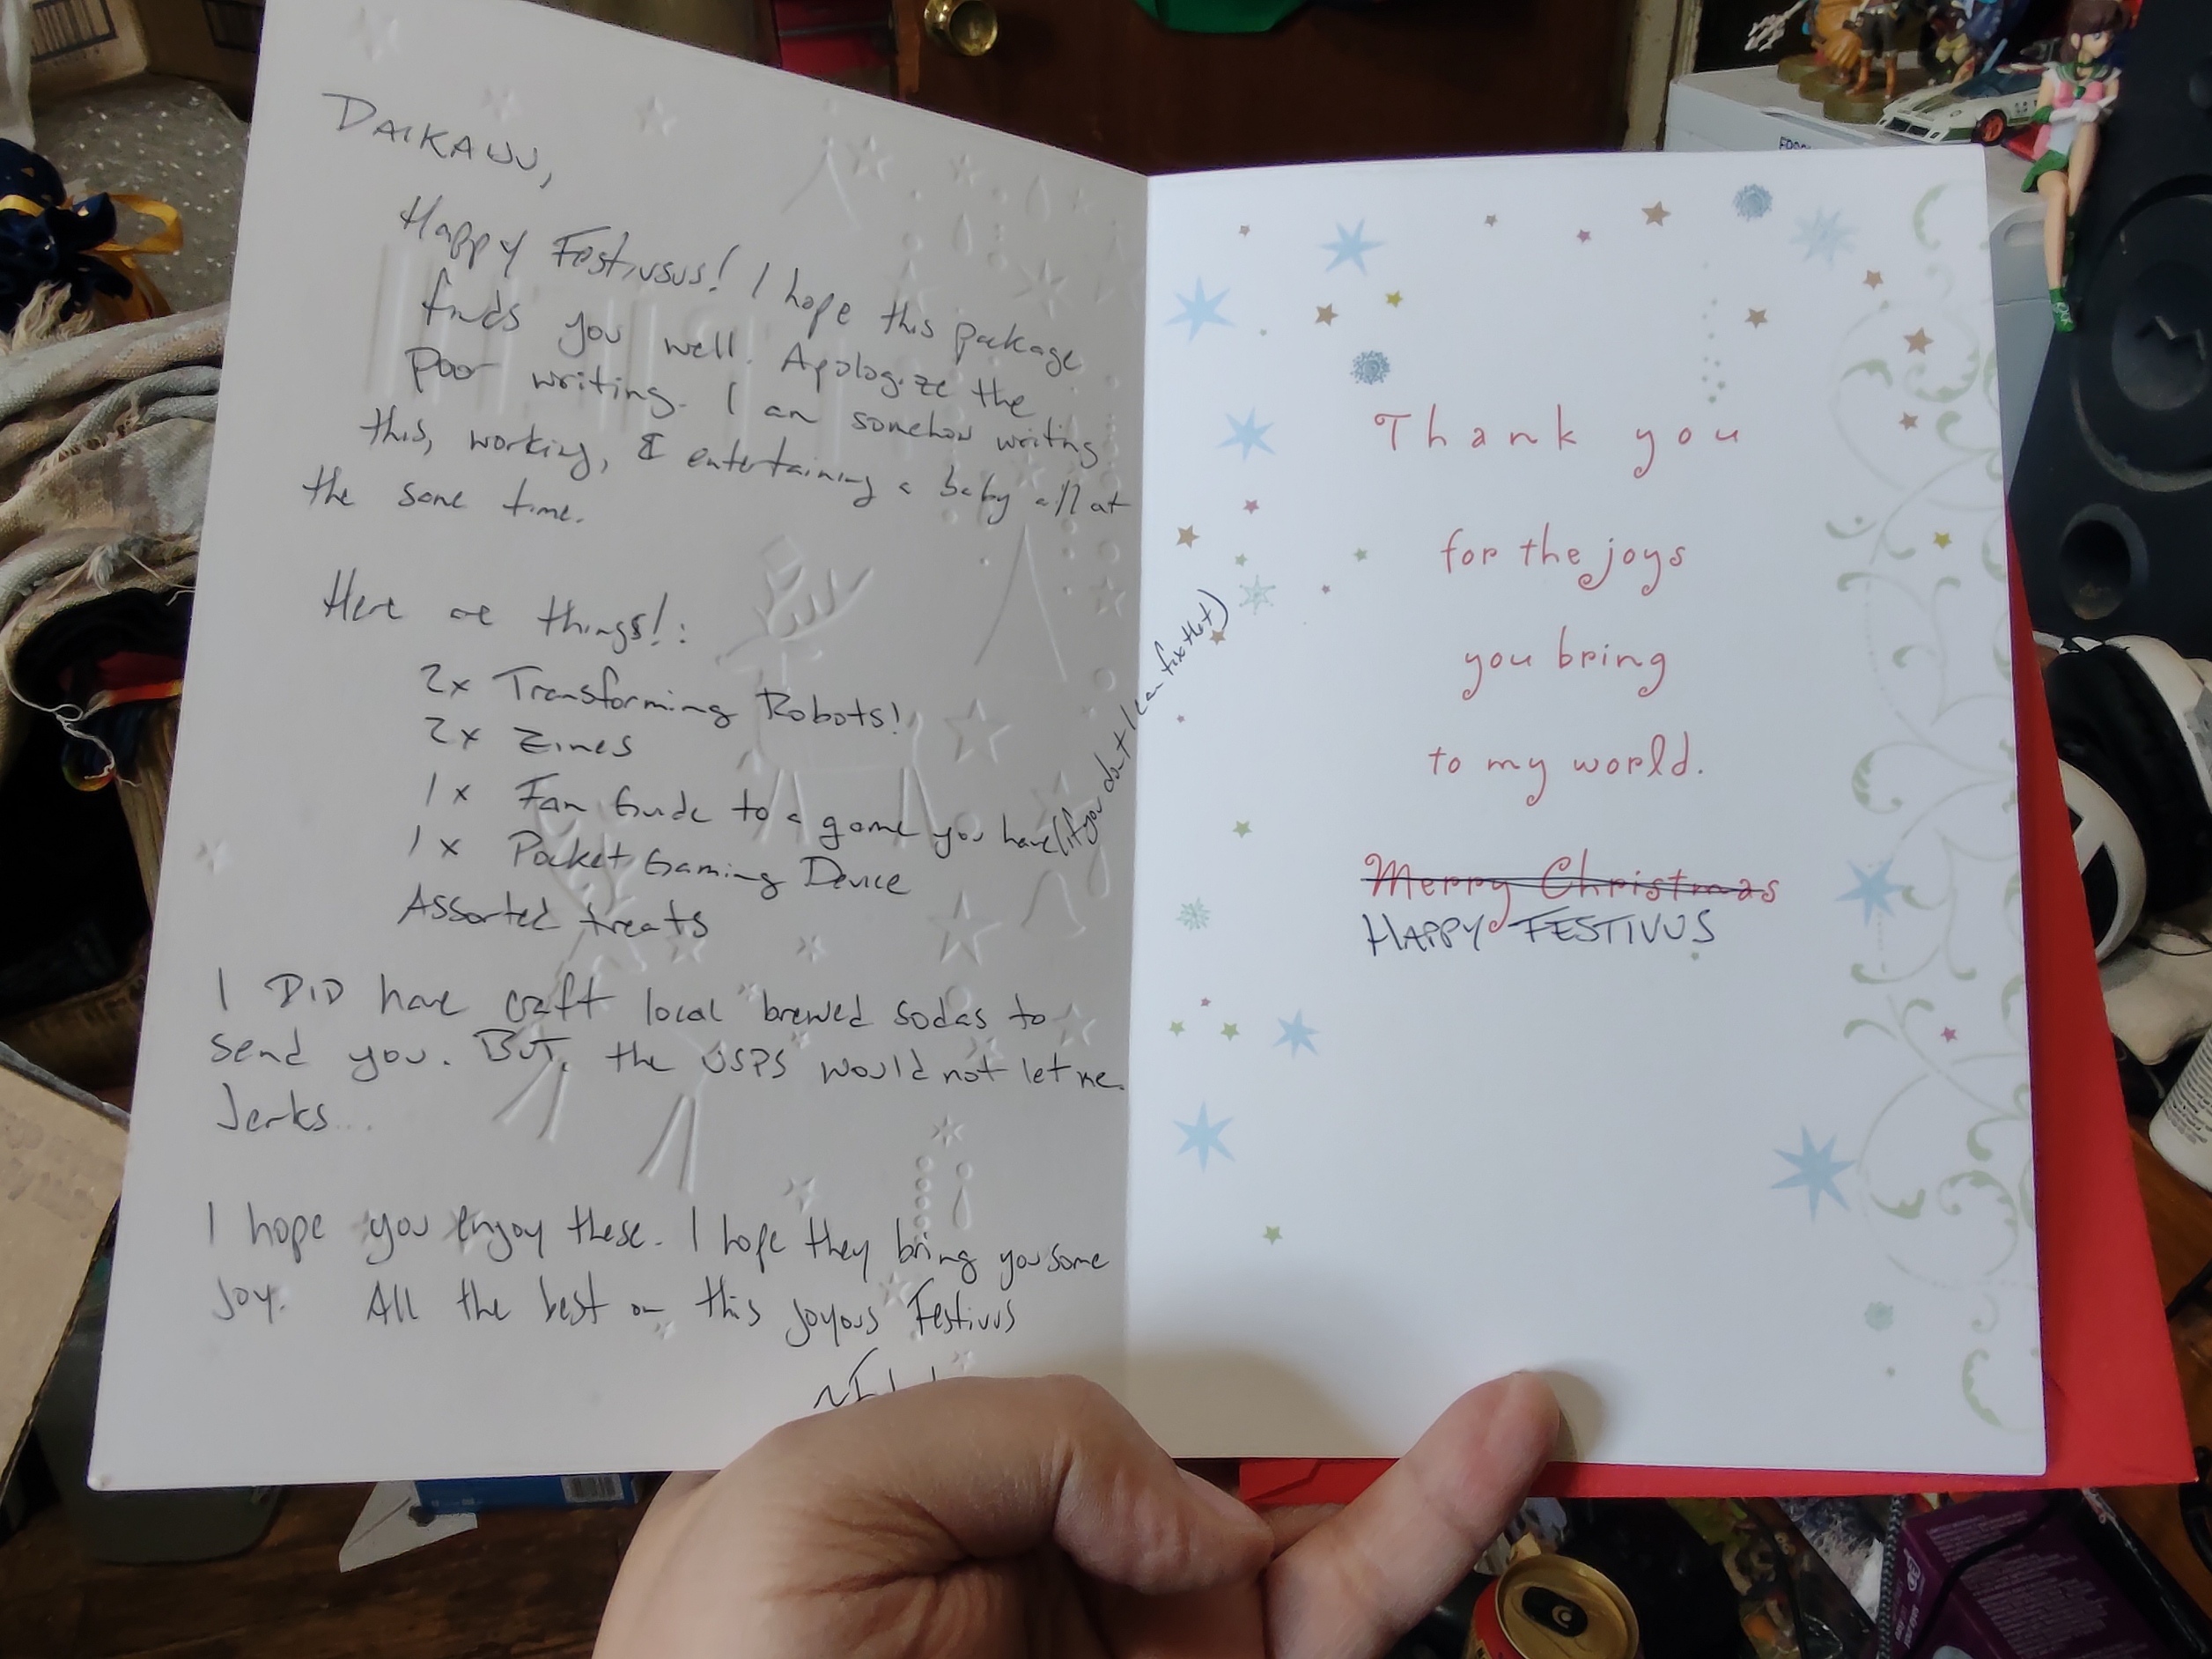 DAIKAUU,
Happy Festivusus! I hope this package
finds you well. Apologize the
poor writing. I am somehow writing
this, working, & entertaining a baby all at
the same time.
Here are things!:
2x Transforming Robots!
2x Zines
1x Fan Guide to a game you have (if you don't I can fix that)
1x Pocket Gaming Device
Assorted treats
I DID have craft local brewed sodas to
send you. BUT, the USPS would not let me.
Jerks...
I hope you enjoy these. I hope they bring you some
joy. All the best on this joyous Festivus
Thank you
for the joys
you bring
to my world.
Merry Christmas
HAPPY FESTIVUS